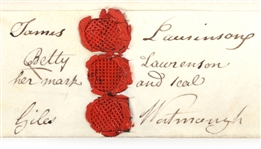 James Laurinson
Betty Lawrenson
her mark and seal
Giles Watmough